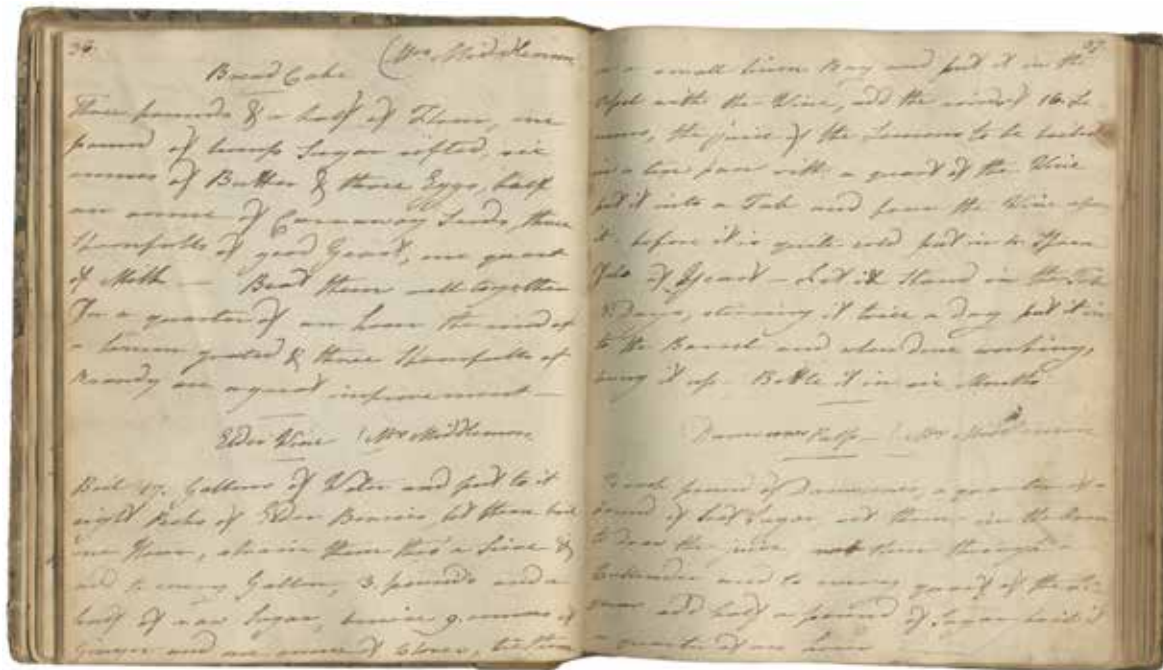 36.
Bread Cake (Mrs Middlemore
Three pounds & a half of Flour, one
pound of lump Sugar sifted, six
ounces of Butter & three Eggs, half
an ounce of Carraway Seeds, three
Spoonfulls of good Yeast, one quart
of Milk — Beat them well together
For a quarter of an hour the rind of
a lemon grated & three Spoonfulls of
Brandy are a great improvement —
Elder Wine (Mrs Middlemore
Boil 17. Gallons of Water and put to it
eight Pecks of Elder Berries, let them boil
one Hour, strain them thro' a Sieve &
add to every Gallon, 3. pounds and a
half of raw Sugar, 9. ounces of
Ginger and one ounce of Cloves, tie them
37
in a small linen Bag and put it in the
with the Wine, add the rind of 16. Le
mons, the juice of the Lemons to be boiled
in a pan with a quart of the Wine
put it into a Tub and pour the Wine upon
it. before it is quite cold put in Spoon
Fulls of Yeast — Let it Stand in the Tub
3. Days, stirring it twice a day put it in
to the Barrel and when done working,
bung it up. Bottle it in six Months
(Mrs Middlemore
To each pound of a quarter of a
pound of Sugar, set them in the Oven
to draw the juice, rub them through a
Cullender and to every quart of the Li-
quor add half a pound of Sugar boil it
a quarter of an hour